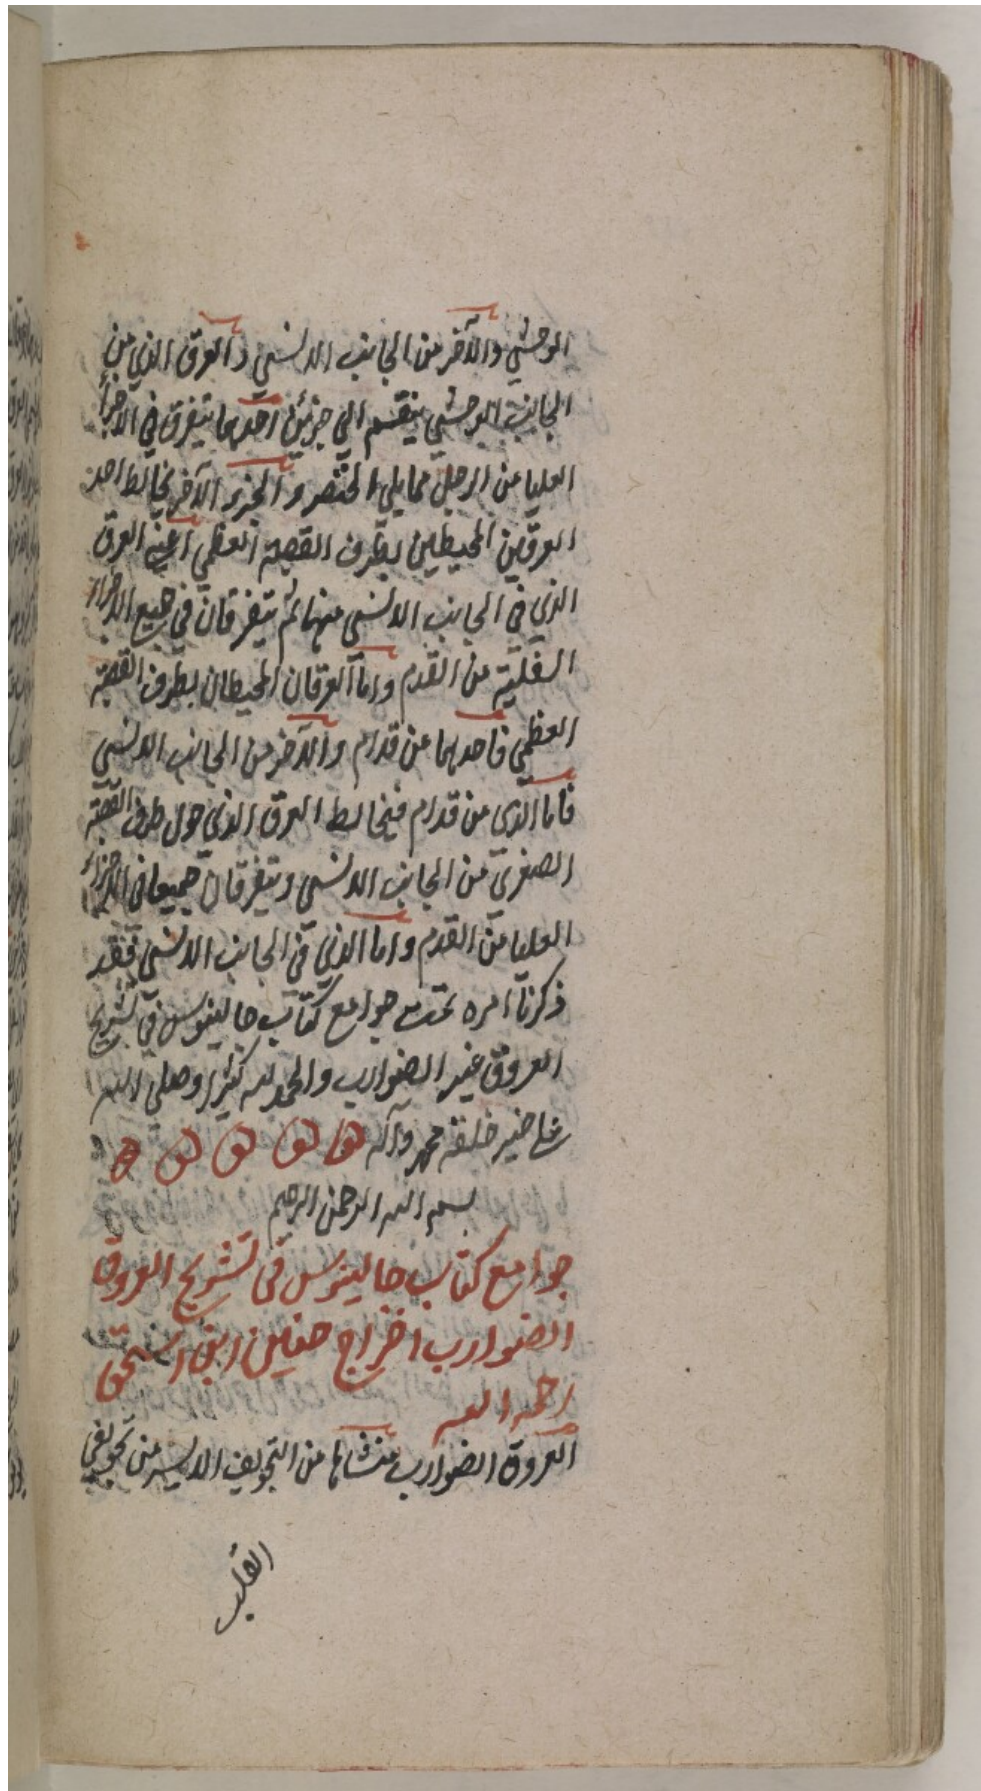 الوحشي والآخر من الجانب الانسي والعرق الذي من
الجانب الوحشي ينقسم الى جزئين احدهما يتفرق في الاجزأ
العليا من الرجل مما يلي الخنصر والجزء الآخر يخالط احد
العرقين المحيطين بطرف القصبة العظمي اعني العرق
الذي في الجانب الانسي منهما ثم يتفرقان في جميع الاجزاء
السفلية من القدم واما العرقان المحيطان بطرف القصبة
العظمي فاحدهما من قدام والآخر من الجانب الانسي
فاما الذي من قدام فيخالط العرق الذي حول طرف القصبة
الصغرى من الجانب الانسي ويتفرقان جميعا في الاجزاء
العليا من القدم واما الذي في الجانب الانسي فقد
ذكرنا امره تمت جوامع كتاب جالينوس في تشريح
العروق غير الضوارب والحمد لله كثيرا وصلى الله
على خير خلقه محمد وآله
بسم الله الرحمن الرحيم
جوامع كتاب جالينوس في تشريح العروق
الضوارب اخراج حنين ابن اسحق
رحمه الله
العروق الضوارب منشاها من التجويف الايسر من تجويفي
القلب